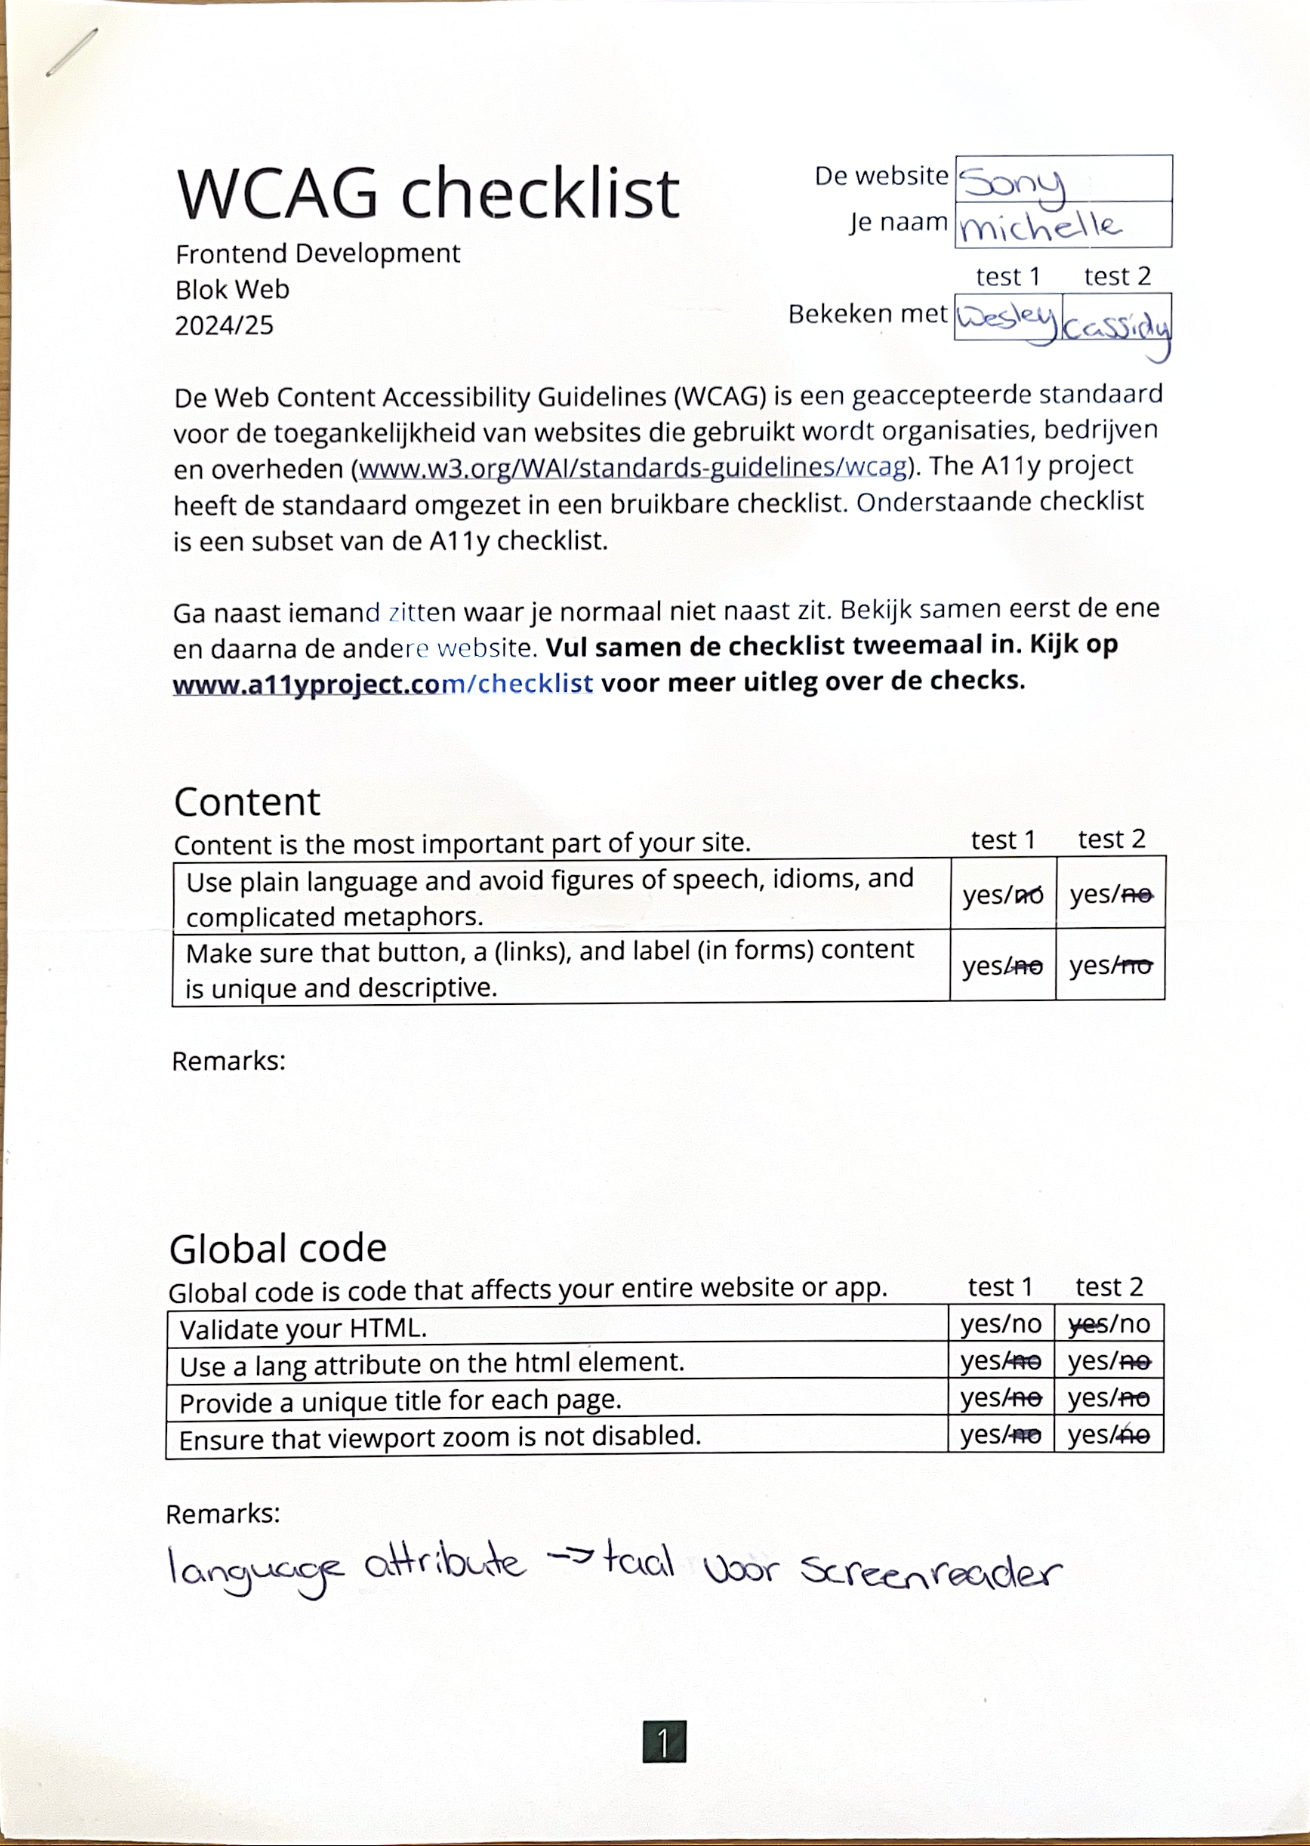 WCAG checklist
Frontend Development
Blok Web
2024/25
De website Sony
Je naam michelle
test 1 test 2
Bekeken met Wesley cassidy
De Web Content Accessibility Guidelines (WCAG) is een geaccepteerde standaard
voor de toegankelijkheid van websites die gebruikt wordt organisaties, bedrijven
en overheden (www.w3.org/WAI/standards-guidelines/wcag). The A11y project
heeft de standaard omgezet in een bruikbare checklist. Onderstaande checklist
is een subset van de A11y checklist.
Ga naast iemand zitten waar je normaal niet naast zit. Bekijk samen eerst de ene
en daarna de andere website. Vul samen de checklist tweemaal in. Kijk op
www.a11yproject.com/checklist voor meer uitleg over de checks.
Content
Content is the most important part of your site. test 1 test 2
Use plain language and avoid figures of speech, idioms, and
complicated metaphors. yes/no yes/no
Make sure that button, a (links), and label (in forms) content
is unique and descriptive. yes/no yes/no
Remarks:
Global code
Global code is code that affects your entire website or app. test 1 test 2
Validate your HTML. yes/no yes/no
Use a lang attribute on the html element. yes/no yes/no
Provide a unique title for each page. yes/no yes/no
Ensure that viewport zoom is not disabled. yes/no yes/no
Remarks:
language attribute -> taal voor screenreader
1